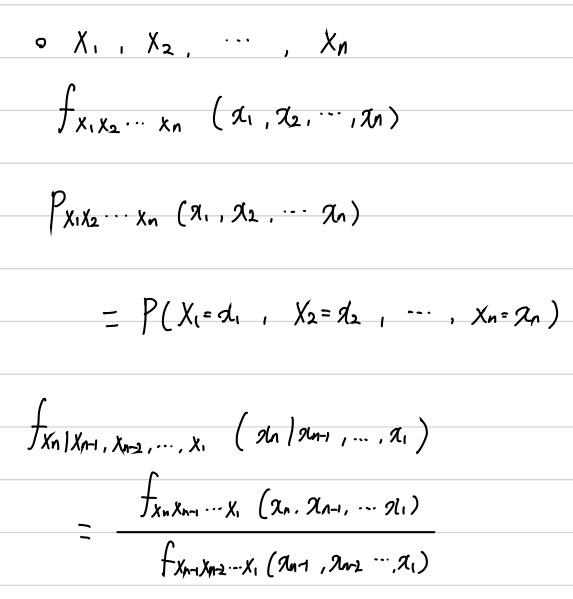 ∘ X₁ , X₂ , ⋯ , Xₙ
f_{X₁X₂⋯Xₙ} (x₁ , x₂ , ⋯ , xₙ)
P_{X₁X₂⋯Xₙ} (x₁ , x₂ , ⋯ xₙ)
= P(X₁=x₁ , X₂=x₂ , ⋯ , Xₙ=xₙ)
f_{Xₙ|Xₙ₋₁, Xₙ₋₂, ⋯, X₁} (xₙ|xₙ₋₁ , ⋯ , x₁)
f_{XₙXₙ₋₁⋯X₁} (xₙ, xₙ₋₁, ⋯ x₁)
=
f_{Xₙ₋₁Xₙ₋₂⋯X₁} (xₙ₋₁ , xₙ₋₂ ⋯, x₁)